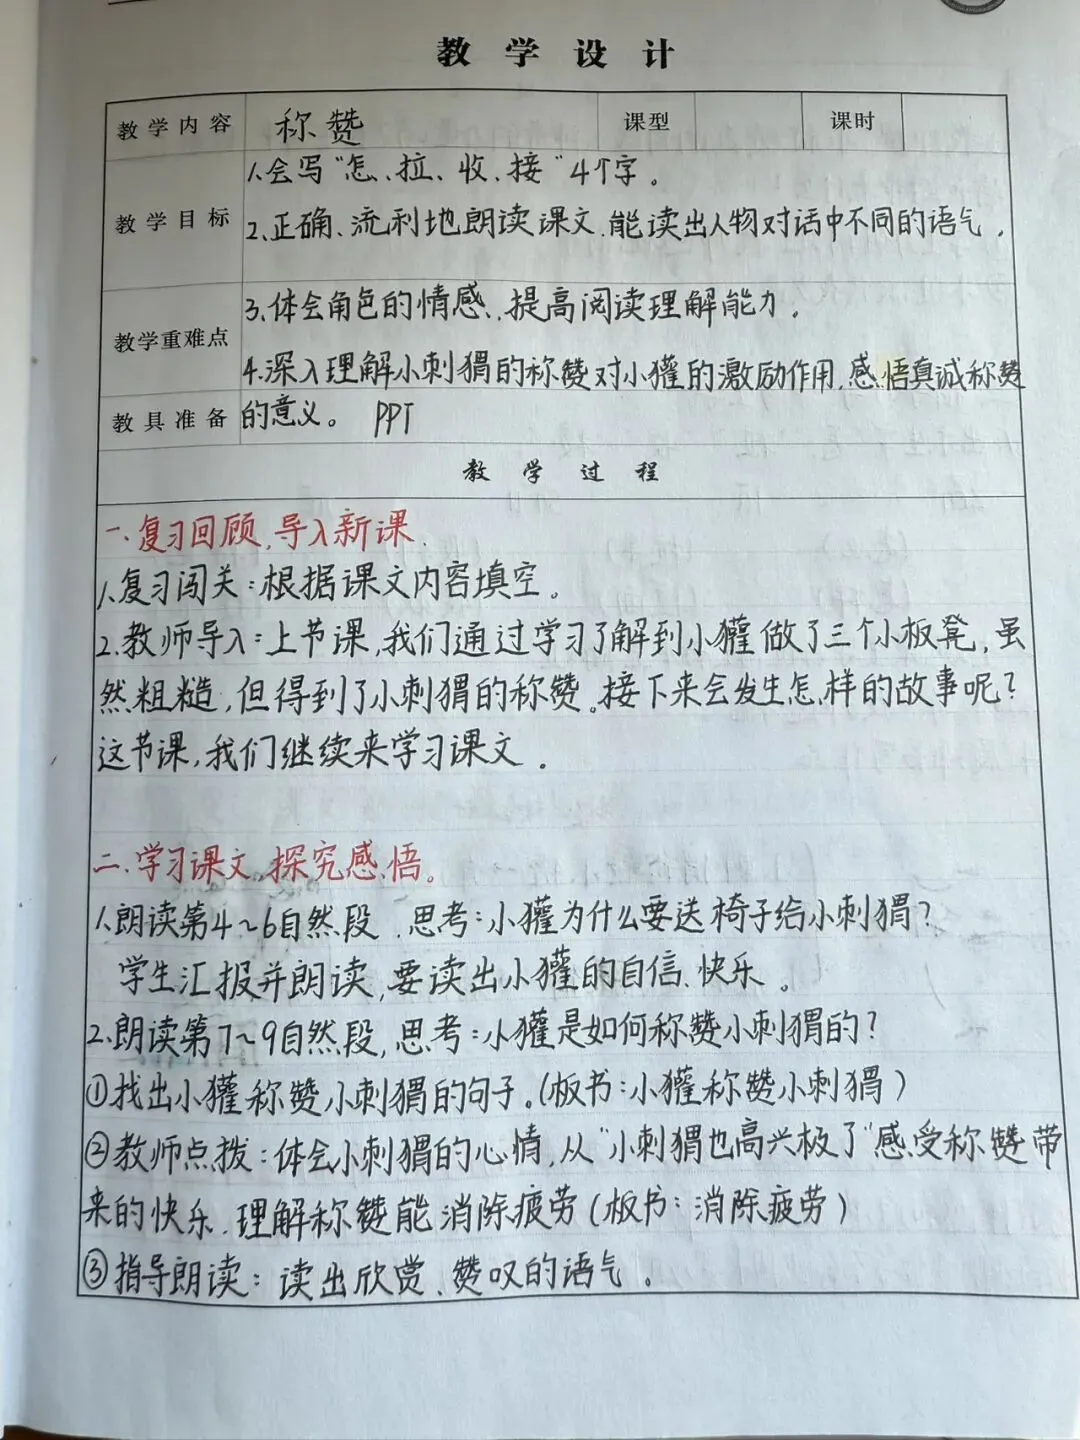 教学设计
教学内容 称赞 课型 课时
1.会写"怎、拉、收、接"4个字。
教学目标 2.正确、流利地朗读课文.能读出人物对话中不同的语气,
3.体会角色的情感、提高阅读理解能力。
教学重难点
4.深入理解小刺猬的称赞对小獾的激励作用,感悟真诚称赞
教具准备 的意义。 PPT
教学过程
一、复习回顾,导入新课.
1.复习闯关:根据课文内容填空。
2.教师导入:上节课,我们通过学习了解到小獾做了三个小板凳,虽
然粗糙,但得到了小刺猬的称赞。接下来会发生怎样的故事呢?
这节课,我们继续来学习课文.
二、学习课文,探究感悟。
1.朗读第4~6自然段.思考:小獾为什么要送椅子给小刺猬?
学生汇报并朗读,要读出小獾的自信、快乐。
2.朗读第7~9自然段,思考:小獾是如何称赞小刺猬的?
①找出小獾称赞小刺猬的句子。(板书:小獾称赞小刺猬)
②教师点拨:体会小刺猬的心情,从"小刺猬也高兴极了"感受称赞带
来的快乐.理解称赞能消除疲劳(板书:消除疲劳)
③指导朗读:读出欣赏、赞叹的语气。